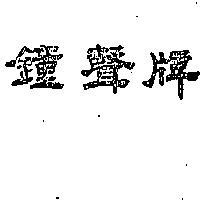 鐘聲牌